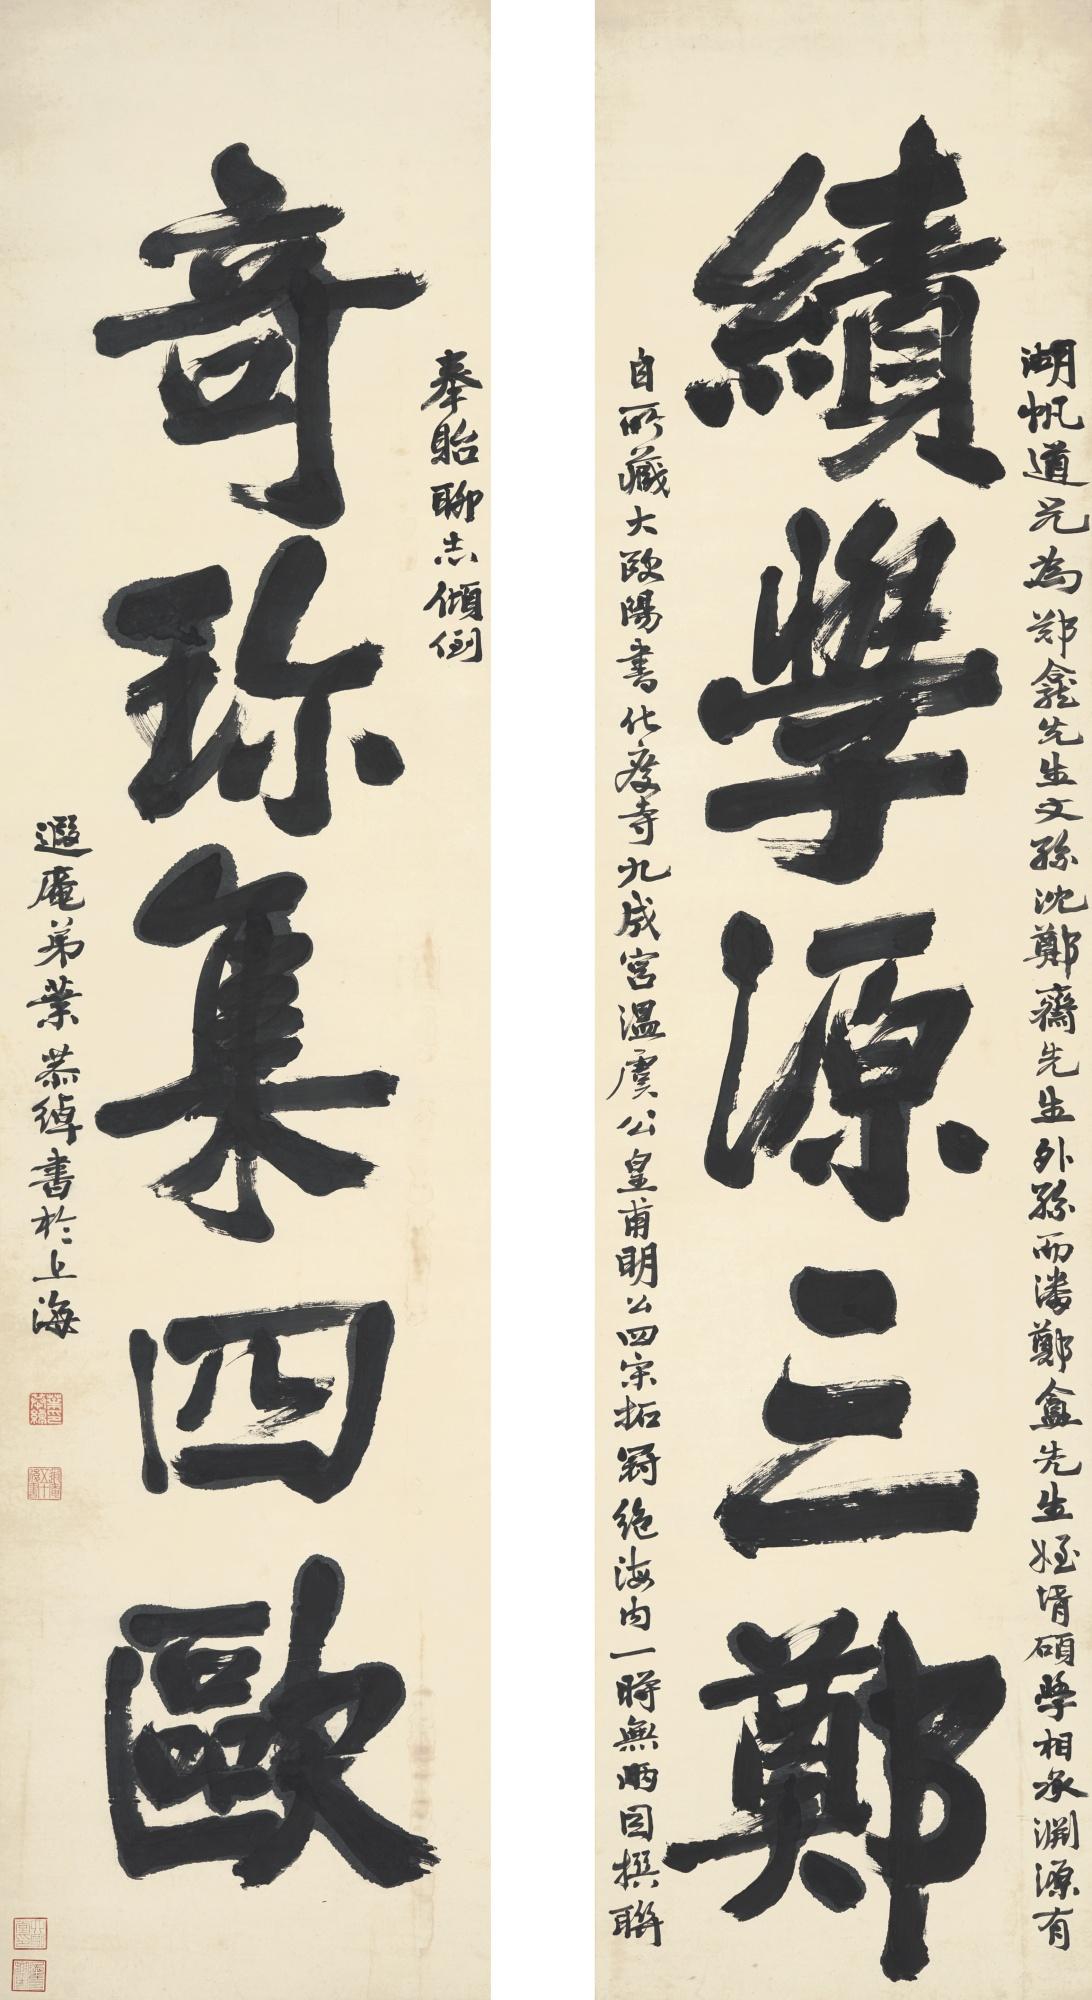 績學源三鄭
湖帆道兄為郑龕先生文孫沈鄭齋先生外孫而潘鄭盦先生姪壻碩學相承淵源有
自所藏大歐陽書化度寺九成宮溫虞公皇甫明公四宋拓冠絕海內一時無兩因撰聯
奇珍集四歐
奉貽聊志傾倒
遐庵弟葉恭綽書於上海